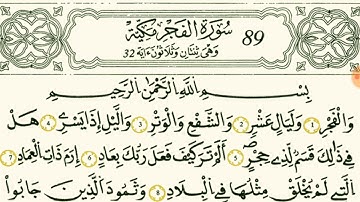 سُورَةُ الْفَجْرِ مَكِّيَّةٌ 89
وَهْيَ ثِنْتَانِ وَثَلَاثُونَ ءَايَةً 32
بِسْمِ اللَّهِ الرَّحْمَٰنِ الرَّحِيمِ
وَالْفَجْرِ 1 وَلَيَالٍ عَشْرٍ 2 وَالشَّفْعِ وَالْوَتْرِ 3 وَالَّيْلِ إِذَا يَسْرِۦ 4 هَلْ
فِي ذَٰلِكَ قَسَمٌ لِّذِي حِجْرٍ 5 أَلَمْ تَرَ كَيْفَ فَعَلَ رَبُّكَ بِعَادٍ 6 إِرَمَ ذَاتِ الْعِمَادِ 7
الَّتِي لَمْ يُخْلَقْ مِثْلُهَا فِي الْبِلَادِ 8 وَثَمُودَ الَّذِينَ جَابُوا